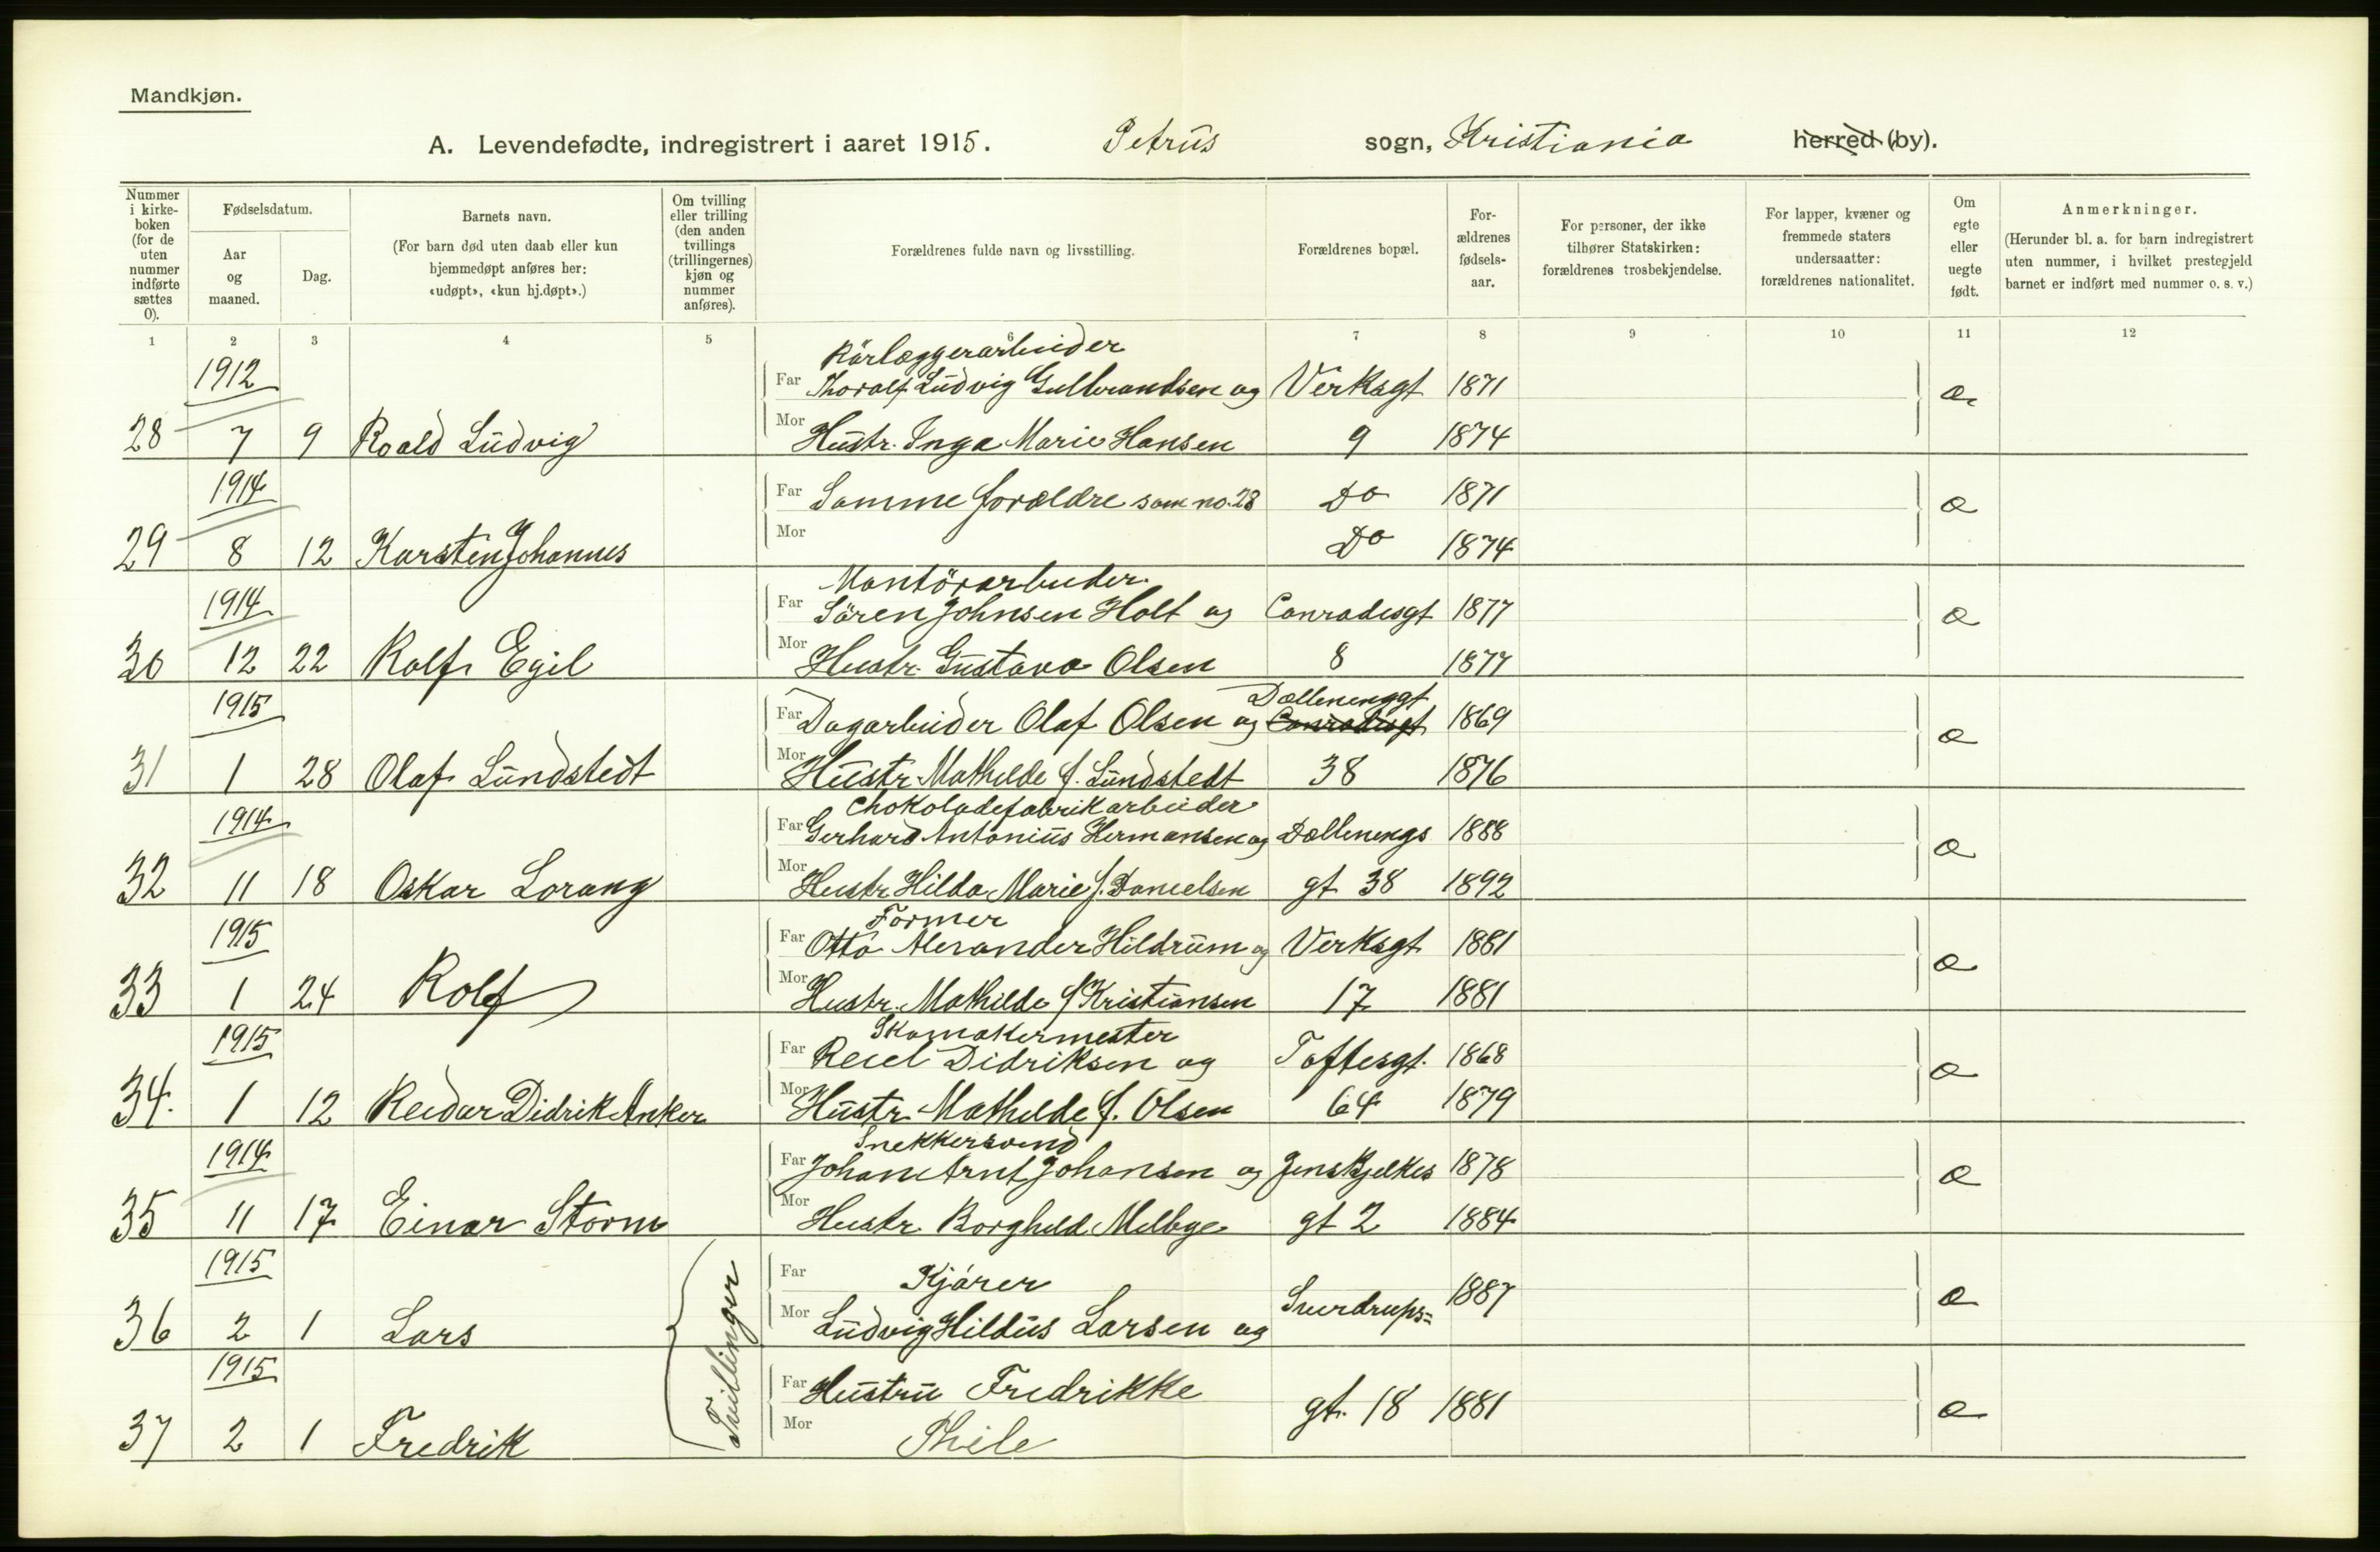 Mandkjøn.
A. Levendefødte, indregistrert i aaret 1915. Petrus sogn, Kristiania herred (by).
Nummer i kirke-boken (for de uten nummer indførte sættes 0).
Fødselsdatum.
Aar og maaned.
Dag.
Barnets navn.
(For barn død uten daab eller kun hjemmedøpt anføres her: «udøpt», «kun hj.døpt».)
Om tvilling eller trilling (den anden tvillings (trillingernes) kjøn og nummer anføres).
Forældrenes fulde navn og livsstilling.
Forældrenes bopæl.
For-ældrenes fødsels-aar.
For personer, der ikke tilhører Statskirken: forældrenes trosbekjendelse.
For lapper, kvæner og fremmede staters undersaatter: forældrenes nationalitet.
Om egte eller uegte født.
Anmerkninger.
(Herunder bl. a. for barn indregistrert uten nummer, i hvilket prestegjeld barnet er indført med nummer o. s. v.)
1 2 3 4 5 6 7 8 9 10 11 12
Rörlæggerarbeider
1912 Far Thoralf Ludvig Gulbrandsen og Verksgt 1871 æ
28 7 9 Roald Ludvig Mor Hustr. Inga Marie Hansen 9 1874
1914 Far Samme forældre som no. 28 Do 1871 æ
29 8 12 Karsten Johannes Mor Do 1874
Montörarbeider
1914 Far Sören Johnsen Holt og Conradisgt 1877 æ
30 12 22 Rolf Egil Mor Hustr. Gustava Olsen 8 1877
Dællenenggt
1915 Far Dagarbeider Olaf Olsen og Conradisgt 1869 æ
31 1 28 Olaf Lundstedt Mor Hustr. Mathilde f. Lundstedt 38 1876
Chokoladefabrikarbeider
1914 Far Gerhard Antonius Hermansen og Dællenengs 1888 æ
32 11 18 Oskar Lorang Mor Hustr. Hilda Marie f. Danielsen gt 38 1892
Former
1915 Far Otto Alexander Hildrum og Verksgt 1881 æ
33 1 24 Rolf Mor Hustr. Mathilde f Kristiansen 17 1881
Skomakermester
1915 Far Reiel Didriksen og Toftesgt. 1868 æ
34. 1 12 Reidar Didrik Anker Mor Hustr. Mathilde f. Olsen 64 1879
Snekkersvend
1914 Far Johan Arnt Johansen og Jens Bjelkes 1878 æ
35 11 17 Einar Storm Mor Hustr. Borghild Melbye gt 2 1884
1915 Tvillinger Far Kjörer
36 2 1 Lars Mor Ludvig Hildus Larsen og Sverdrups= 1887 æ
1915 Far Hustru Fredrikke gt. 18 1881 æ
37 2 1 Fredrik Mor Thile